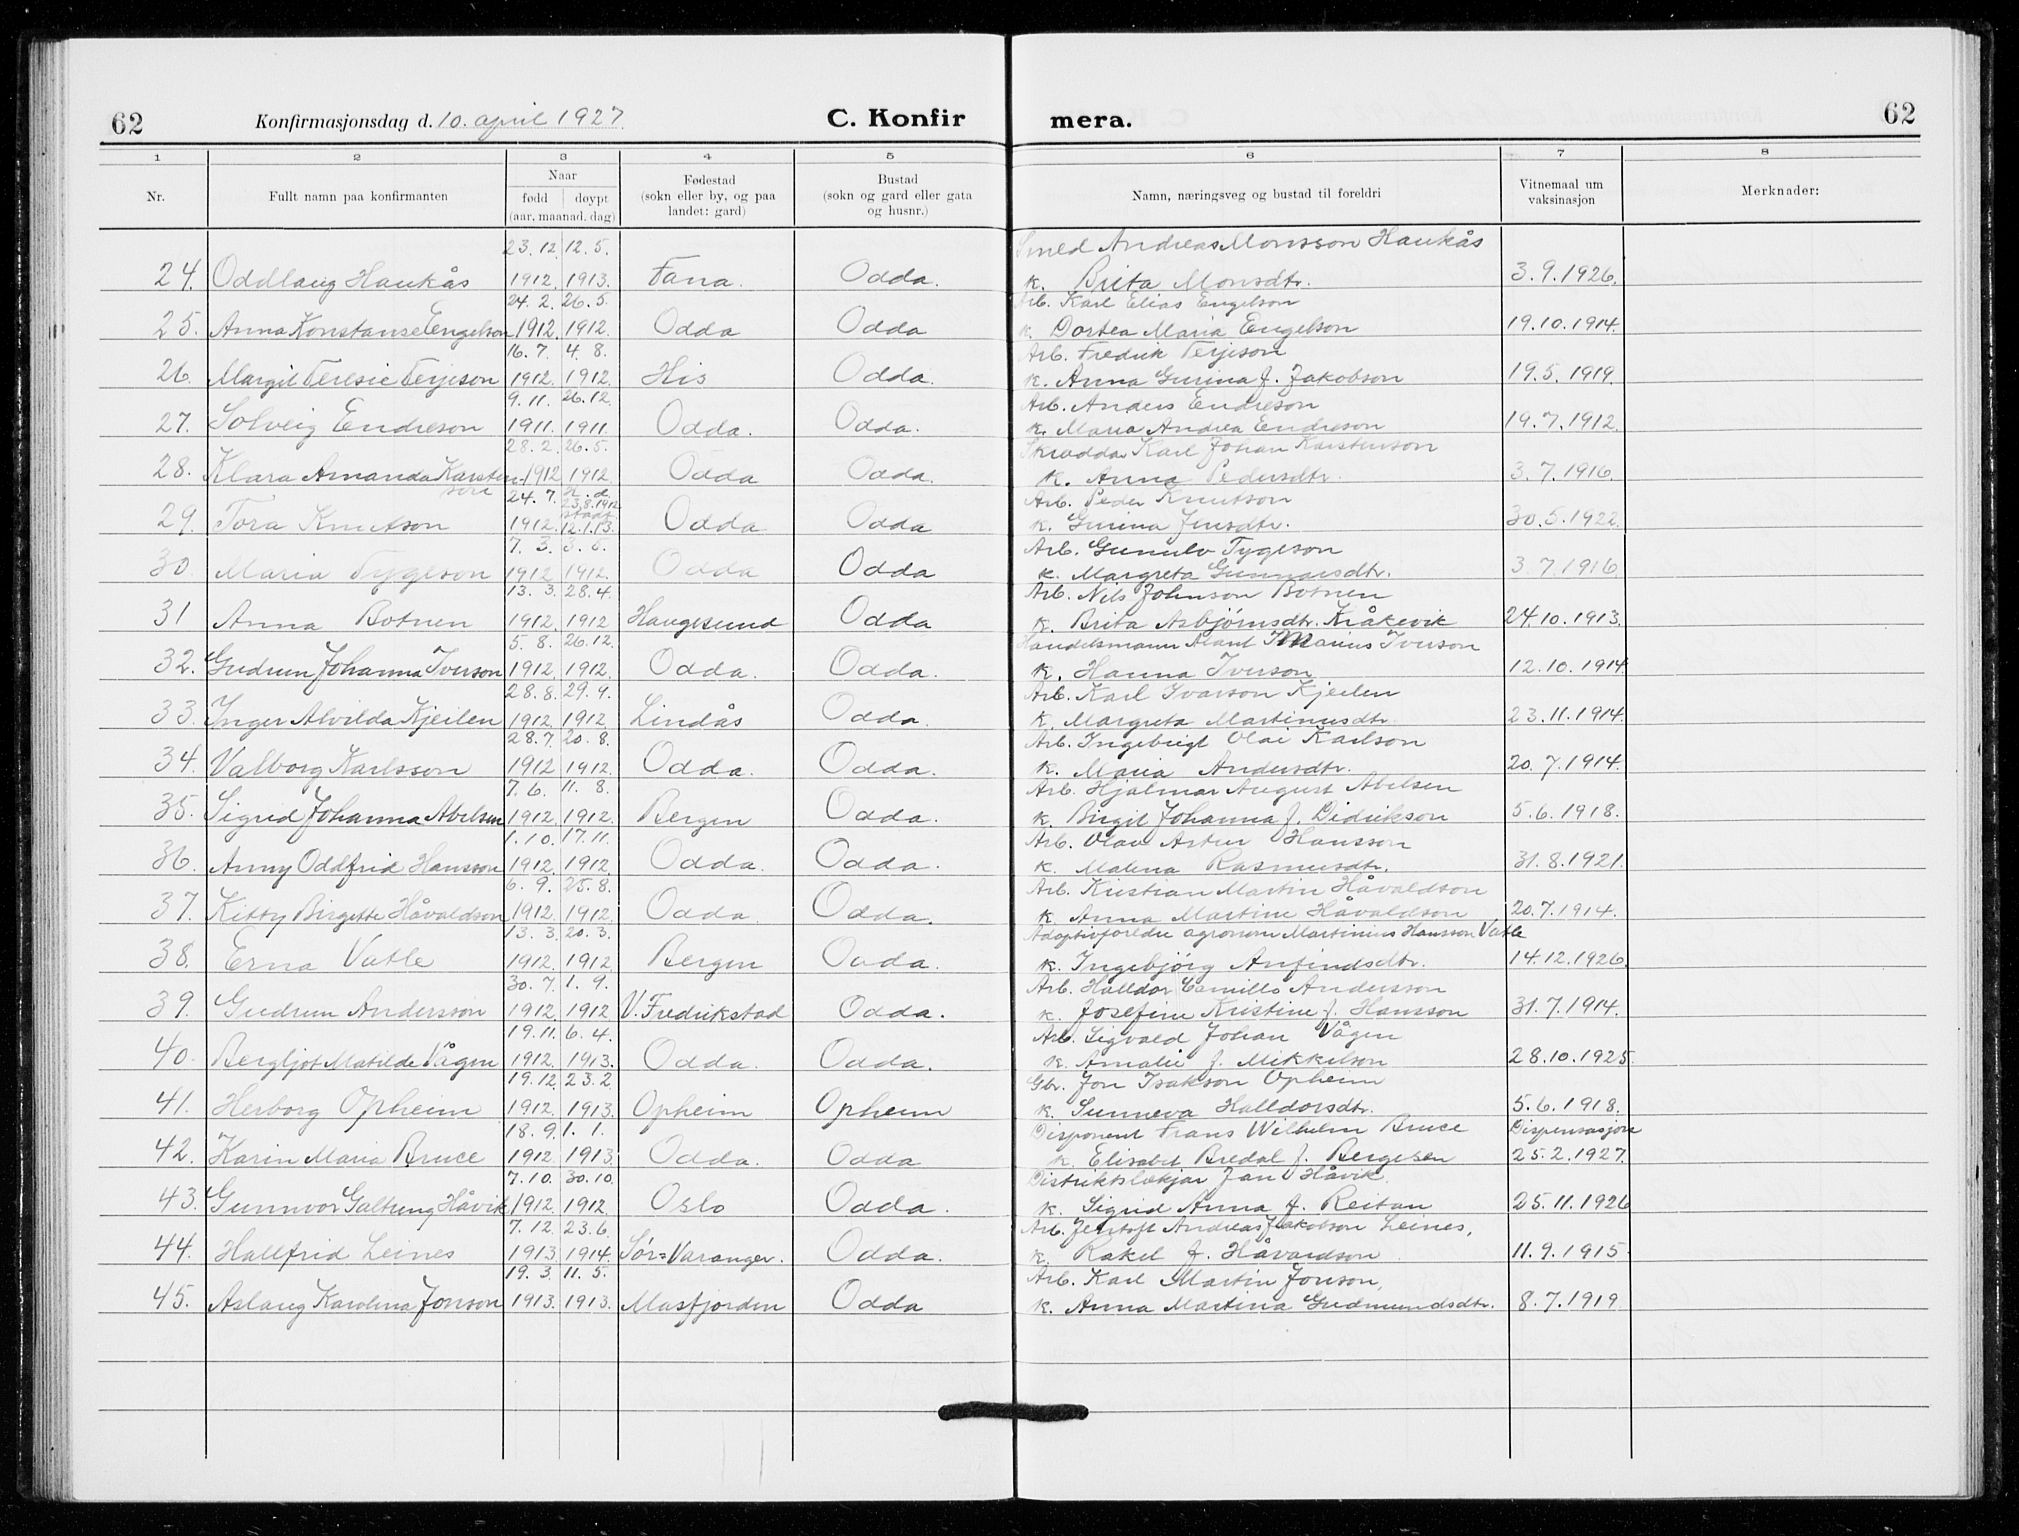 62 Konfirmasjonsdag d. 10. april 1927. C. Konfir mera. 62
1 2 3 4 5 6 7 8
Nr. Fullt namn paa konfirmanten Naar fødd døypt (aar, maanad, dag) Fødestad (sokn eller by, og paa landet: gard) Bustad (sokn og gard eller gata og husnr.) Namn, næringsveg og bustad til foreldri Vitnemaal um vaksinasjon Merknader:
23.12. 12.5. Smed Andreas Monsson Haukås
24. Oddlaug Haukås 1912. 1913. Fana. Odda. k. Brita Monsdtr. 3.9.1926.
24.2. 26.5. Arb. Karl Elias Engelson
25. Anna Konstanse Engelson 1912. 1912. Odda Odda k. Dortea Maria Engelson 19.10.1914.
16.7. 4.8. Arb. Fredrik Terjeson
26. Margit Teresie Terjeson 1912. 1912. His Odda. k. Anna Gurina f. Jakobson 19.5.1919.
9.11. 26.12. Arb. Anders Endreson
27. Solveig Endreson 1911. 1911. Odda. Odda. k. Maria Andrea Endreson 19.7.1912.
28.2. 26.5. Skreddar Karl Johan Karstenson
28. Klara Amanda Karstenson 1912 1912 Odda Odda. k. Anna Pedersdtr. 3.7.1916.
24.7. h.d. 23.8.1912 Arb. Peder Knutson
29. Tora Knutson 1912. stadf. 12.1.13. Odda Odda k. Gurina Jensdtr. 30.5.1922.
7.3. 3.5. Arb. Gunnulv Tygeson
30 Maria Tygeson 1912 1912. Odda Odda k. Margreta Gunnarsdtr. 3.7.1916
13.3. 28.4. Arb. Nils Johnson Botnen
31 Anna Botnen 1912. 1912 Haugesund Odda k. Brita Asbjørnsdtr. Kråkevik 24.10.1913.
5.8. 26.12. Handelsmann Marius Iverson
32. Gudrun Johanna Iverson 1912. 1912. Odda. Odda. k. Hanna Iverson 12.10.1914.
28.8. 29.9. Arb. Karl Ivarson Kjeilen
33. Inger Alvilda Kjeilen 1912. 1912. Lindås Odda. k. Margreta Martinusdtr. 23.11.1914.
28.7. 20.8. Arb. Ingebrigt Olai Karlson
34. Valborg Karlsson 1912 1912. Odda. Odda. k. Maria Andersdtr. 20.7.1914.
7.6. 11.8. Arb. Hjalmar August Abelsen
35. Sigrid Johanna Abelsen 1912. 1912. Bergen Odda. k. Birgit Johanna f. Didrikson 5.6.1918.
1.10. 17.11. Arb. Olav Artur Hansson
36. Anny Oddfrid Hansson 1912. 1912 Odda. Odda. k. Malena Rasmusdtr. 31.8.1921.
6.9. 25.8. Arb. Kristian Martin Håvaldson
37. Kitty Birgette Håvaldson 1912. 1912. Odda. Odda. k. Anna Martine Håvaldson 20.7.1914.
13.3. 20.3. Adoptivforeldre agronom Martinius Hansson Vatle
38. Erna Vatle 1912. 1912. Bergen Odda. k. Ingebjörg Anfindsdtr. 14.12.1926.
30.7. 1.9. Arb. Halldor Camillo Andersson
39. Gudrun Andersson 1912. 1912 V. Fredrikstad Odda. k. Josefine Kristine f. Hansson 31.7.1914.
19.11. 6.4. Arb. Sigvald Johan Vågen
40. Bergljot Matilde Vågen 1912. 1913. Odda. Odda. k. Amalie f. Mikkelson 28.10.1925.
19.12. 23.2. Gbr. Jon Isakson Opheim
41. Herborg Opheim 1912. 1913. Opheim Opheim k. Sunneva Halldorsdtr. 5.6.1918.
18.9. 1.1. Disponent Frans Wilhelm Bruce Dispensasjon
42. Karin Maria Bruce 1912. 1913. Odda. Odda k. Elisabet Bredal f. Bergesen 25.2.1927.
7.10. 30.10. Distriktslækjar Jan Håvik.
43. Gunnvor Galtung Håvik 1912. 1912. Oslo Odda. k. Sigrid Anna f. Reitan 25.11.1926
7.12. 23.6. Arb. Jentoft Andreas Jakobson Leines,
44. Hallfrid Leines 1913. 1914. Sør-Varanger. Odda. k. Rakel f. Håvardson 11.9.1915.
19.3. 11.5. Arb. Karl Martin Jonson,
45. Aslaug Karolina Jonson 1913. 1913. Masfjorden Odda k. Anna Martina Gudmundsdtr. 8.7.1919.